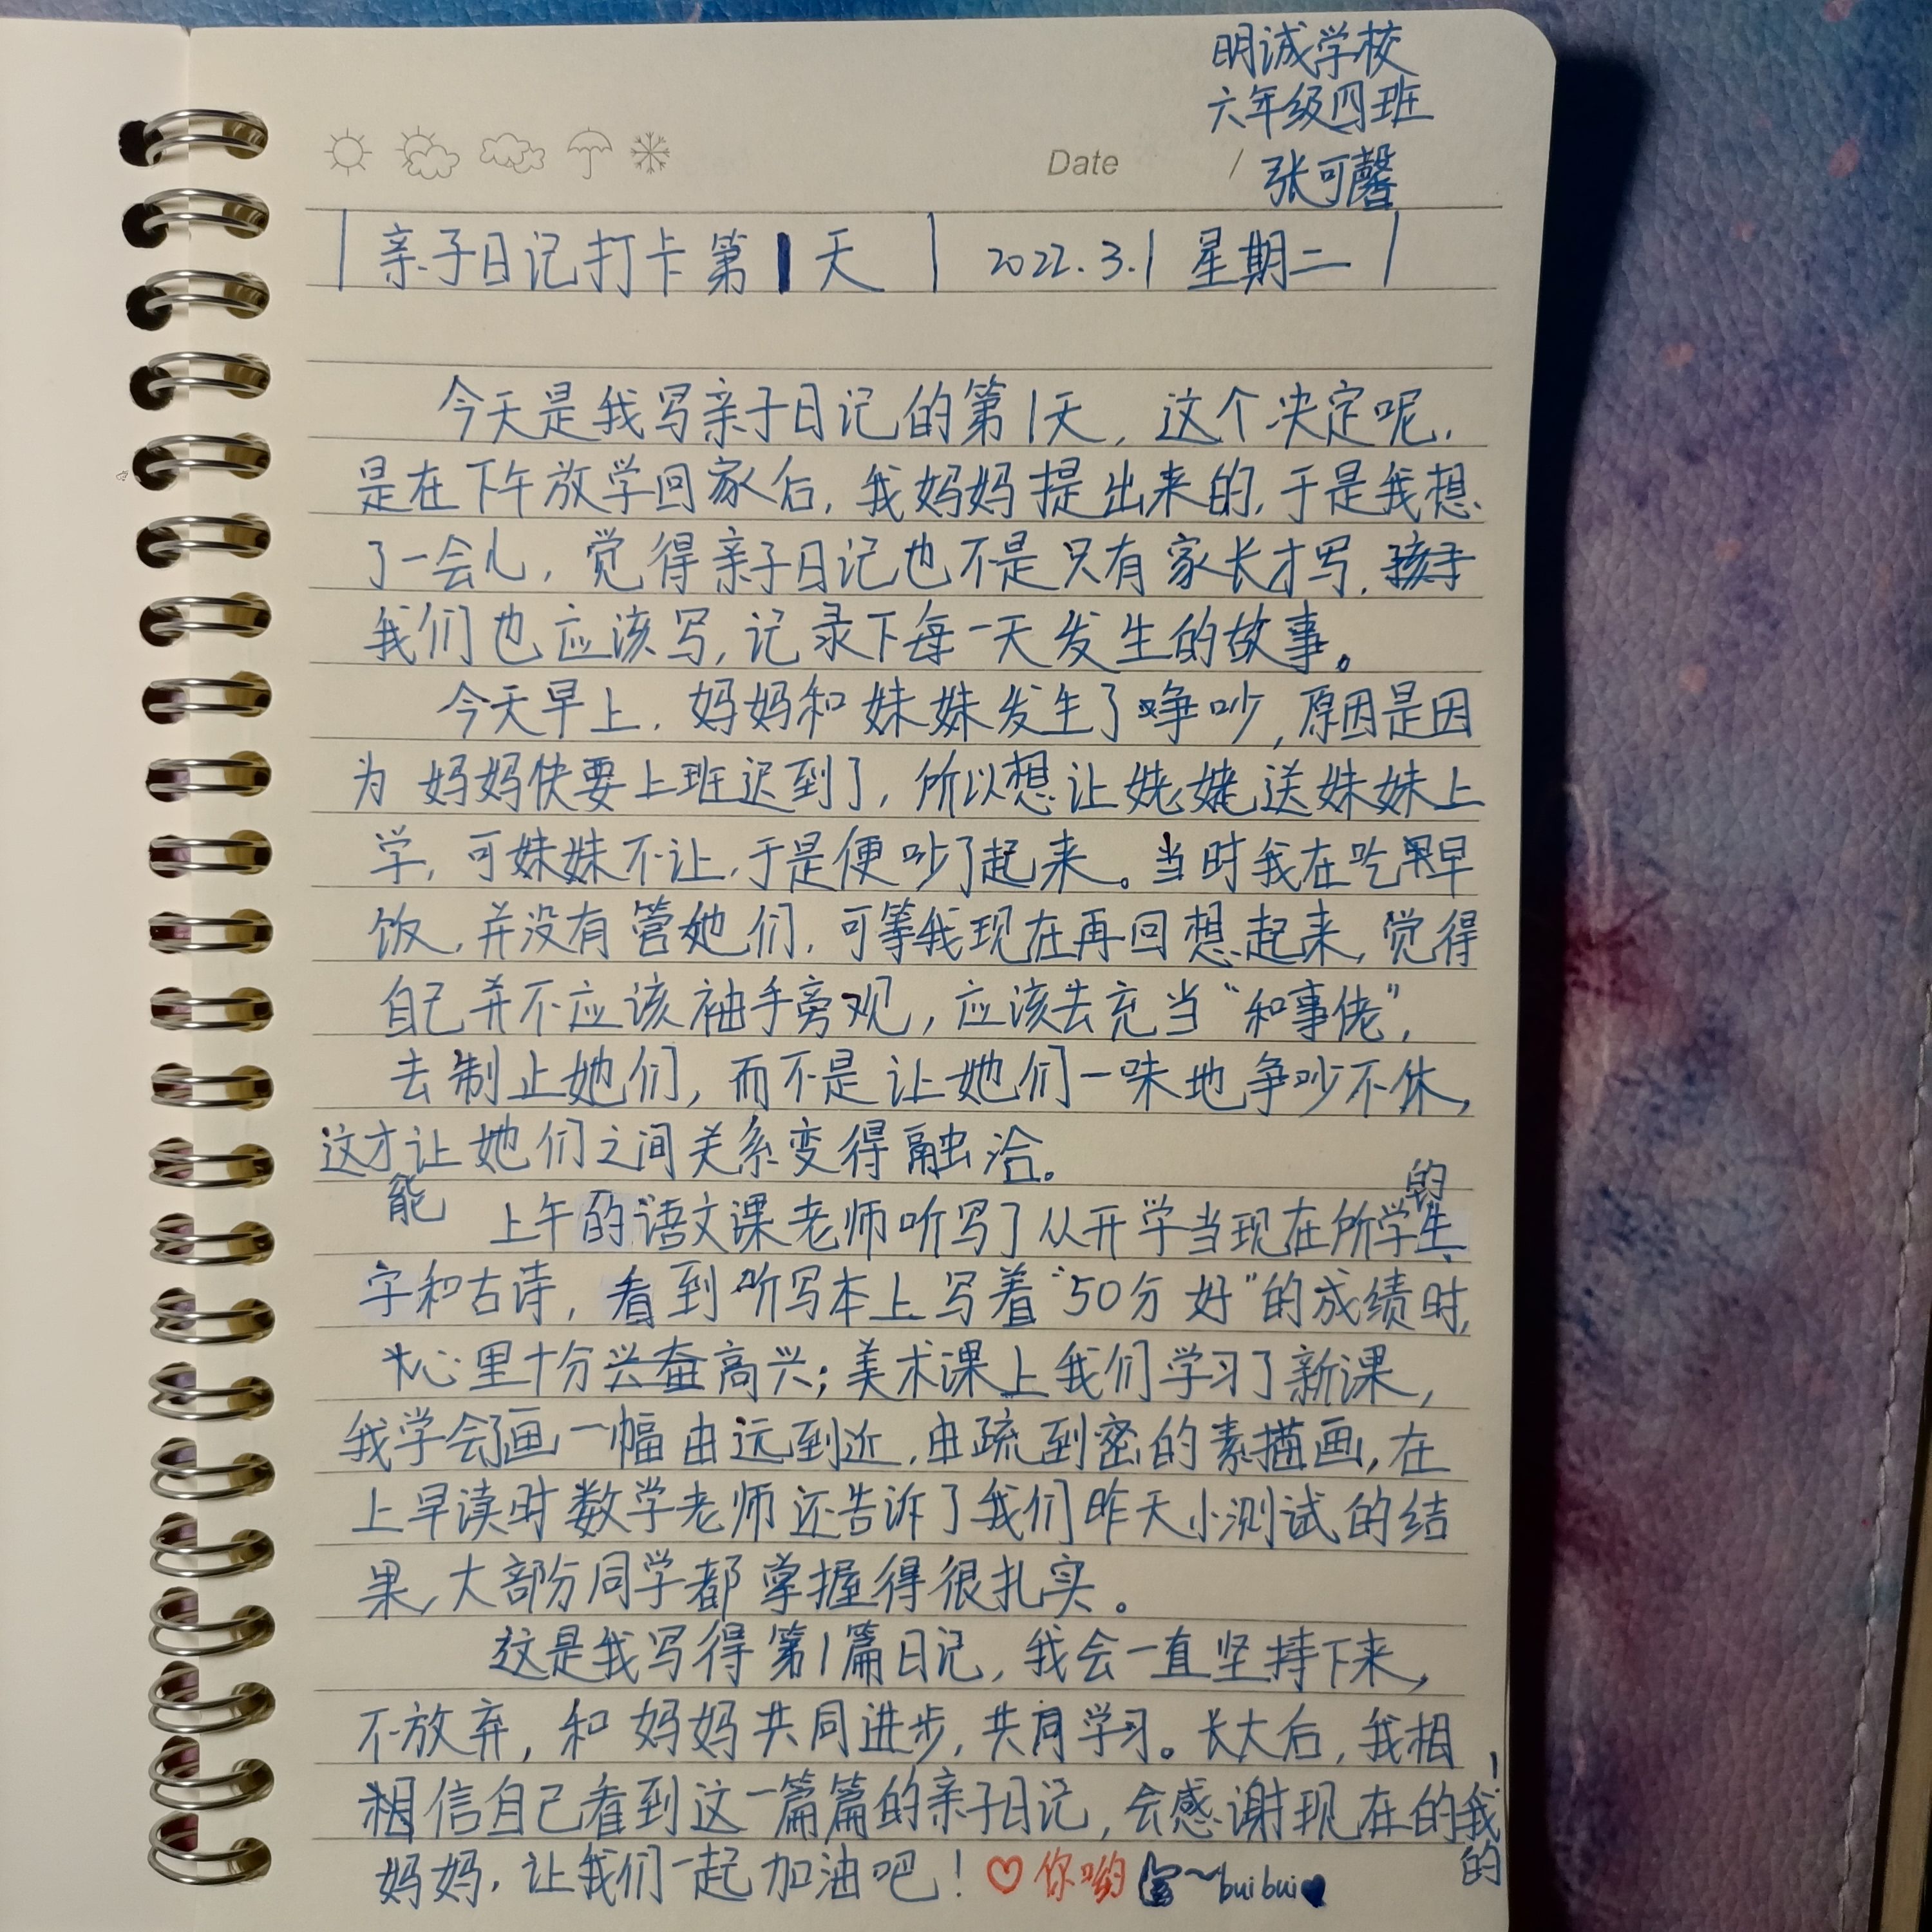 明诚学校
六年级四班
Date / 张可馨
亲子日记打卡第1天 2022.3.1 星期二
今天是我写亲子日记的第1天,这个决定呢,
是在下午放学回家后,我妈妈提出来的,于是我想
了一会儿,觉得亲子日记也不是只有家长才写,孩子
我们也应该写,记录下每一天发生的故事。
今天早上,妈妈和妹妹发生了争吵,原因是因
为妈妈快要上班迟到了,所以想让姥姥送妹妹上
学,可妹妹不让,于是便吵了起来。当时我在吃早
饭,并没有管她们,可等我现在再回想起来,觉得
自己并不应该袖手旁观,应该去充当“和事佬”,
去制止她们,而不是让她们一味地争吵不休,
这才能让她们之间关系变得融洽。
上午的语文课老师听写了从开学当现在所学的生
字和古诗,看到听写本上写着“50分 好”的成绩时,
心里十分兴奋高兴;美术课上我们学习了新课,
我学会画一幅由远到近,由疏到密的素描画,在
上早读时数学老师还告诉了我们昨天小测试的结
果,大部分同学都掌握得很扎实。
这是我写得第1篇日记,我会一直坚持下来,
不放弃,和妈妈共同进步,共同学习。长大后,我相
相信自己看到这一篇篇的亲子日记,会感谢现在的我的
妈妈,让我们一起加油吧!♡你哟~buibui♥